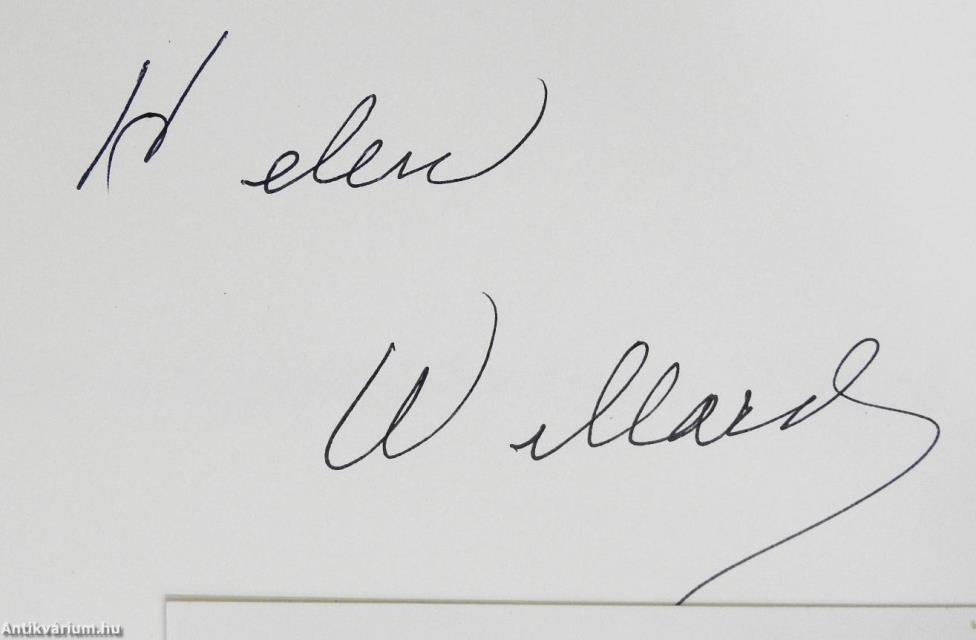 Helen
Willard
Antikvárium.hu